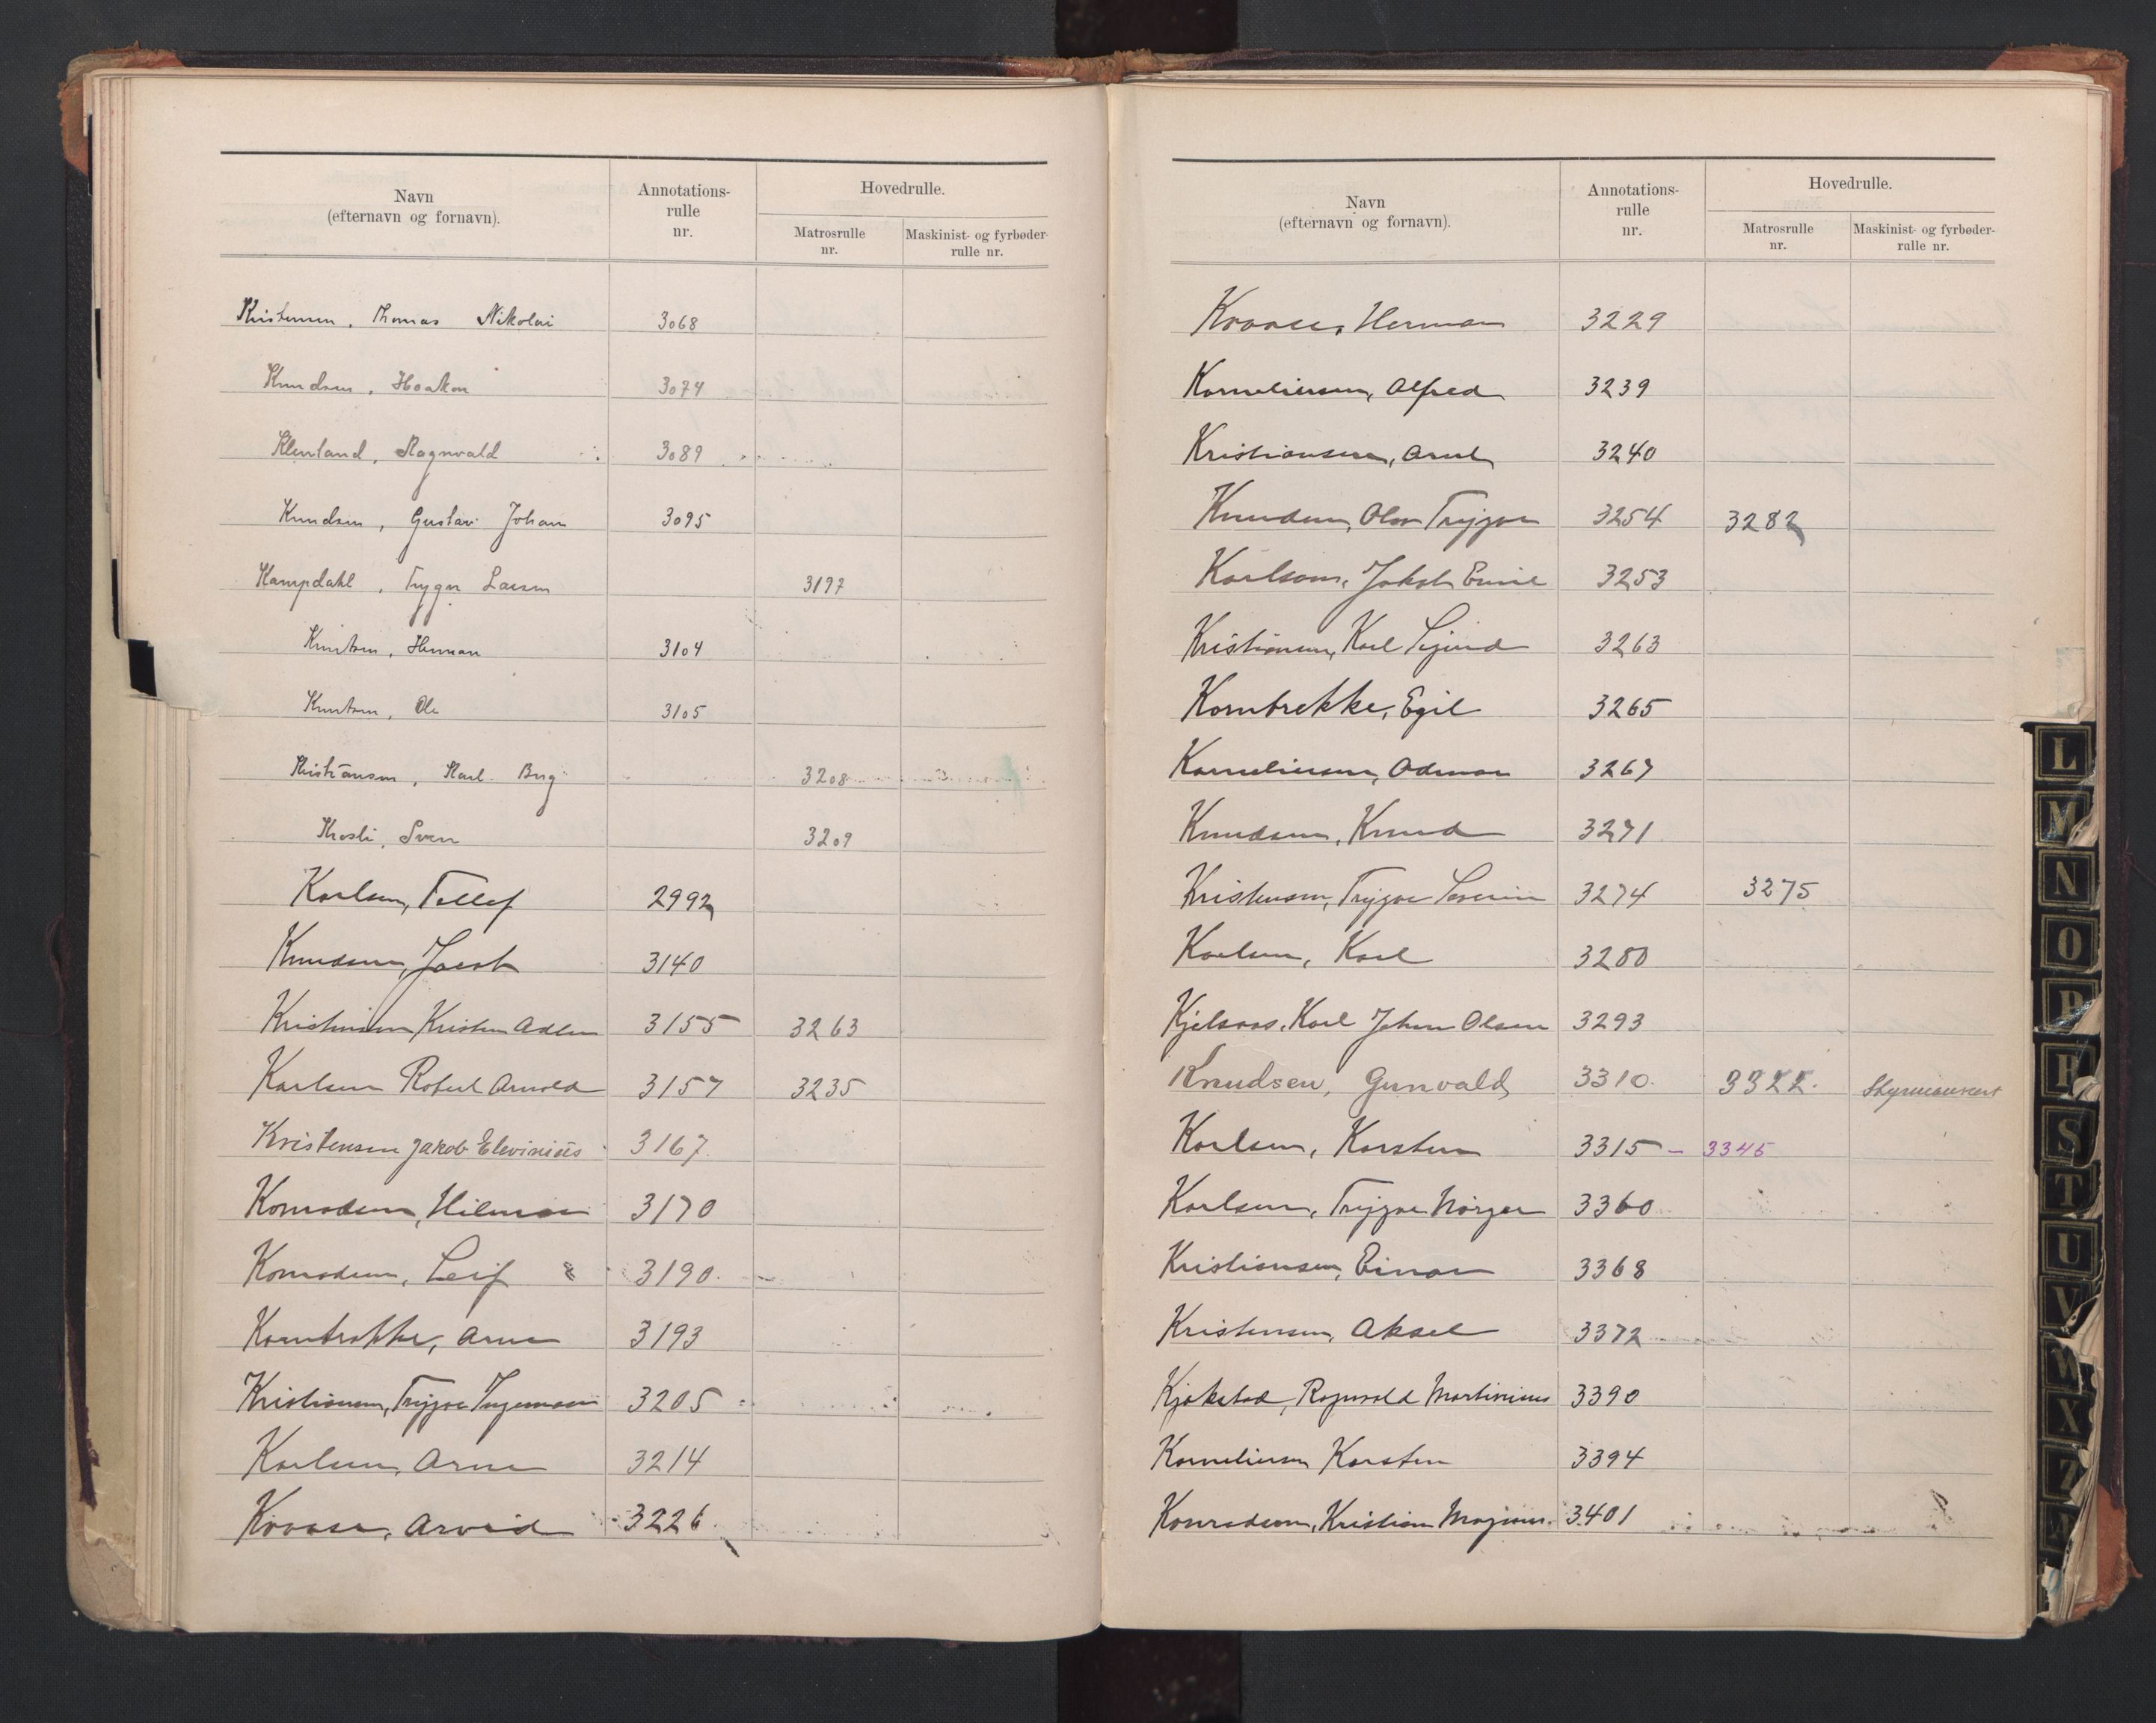 Navn (efternavn og fornavn). Annotations-rulle nr. Hovedrulle. Matrosrulle nr. Maskinist- og fyrbøder-rulle nr.
Kristensen, Thomas Nikolai 3068
Knudsen, Haakon 3074
Klenland, Ragnvald 3089
Knudsen, Gustav Johan 3095
Kampdahl, Trygve Larsen 3197
Knutsen, Herman 3104
Knutsen, Ole 3105
Kristiansen, Karl Birg 3208
Krosli, Sven 3209
Karlsen, Tellef 2992
Knudsen, Jacob 3140
Kristensen Kristen Adler 3155 3263
Karlsen Robert Arnold 3157 3235
Kristensen Jakob Elevinius 3167
Konradsen, Hilmar 3170
Konradsen, Leif 3190
Kornbrekke, Arne 3193
Kristiansen, Trygve Ingemann 3205
Karlsen, Arne 3214
Kraase, Arvid 3226
Navn (efternavn og fornavn). Annotations-rulle nr. Hovedrulle. Matrosrulle nr. Maskinist- og fyrbøder-rulle nr.
Kraase, Herman 3229
Korneliussen, Alfred 3239
Kristiansen, Arnt 3240
Knudsen, Olav Trygve 3254 3282
Karlsen, Jakob Emil 3253
Kristiansen, Karl Sigurd 3263
Kornbrekke, Egil 3265
Korneliussen, Odmar 3267
Knudsen, Knud 3271
Kristensen, Trygve Severin 3274 3275
Karlsen, Karl 3280
Kjelsaas, Karl Johan Olsen 3293
Knudsen, Gunvald 3310. 3322. Styrmannscert
Karlsen, Karsten 3315 - 3345
Karlsen, Trygve Nørger 3360
Kristiansen, Einar 3368
Kristensen, Aksel 3372
Kjøkstad, Ragnvald Martinius 3390
Korneliussen Karsten 3394
Konradsen, Kristian Magnus. 3401
L
M
N
O
P
R
S
T
U
V
W
X